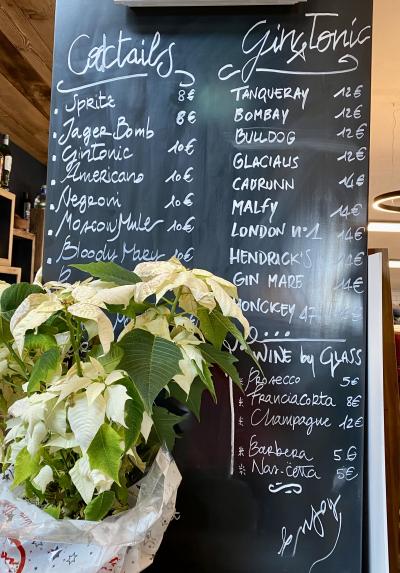 Cocktails
Spritz 8€
Jager Bomb 8€
Gin Tonic 10€
Americano 10€
Negroni 10€
Moscow Mule 10€
Bloody Mary 10€
Gin & Tonic
TANQUERAY 12€
BOMBAY 12€
BULLDOG 12€
GLACIALIS 12€
CADRUNN 14€
MALFY 14€
LONDON n°1 14€
HENDRICK'S 14€
GIN MARE 14€
MONCKEY 47 14€
WINE by GLASS
Prosecco 5€
Franciacorta 8€
Champagne 12€
Barbera 5€
Nas-cëtta 5€